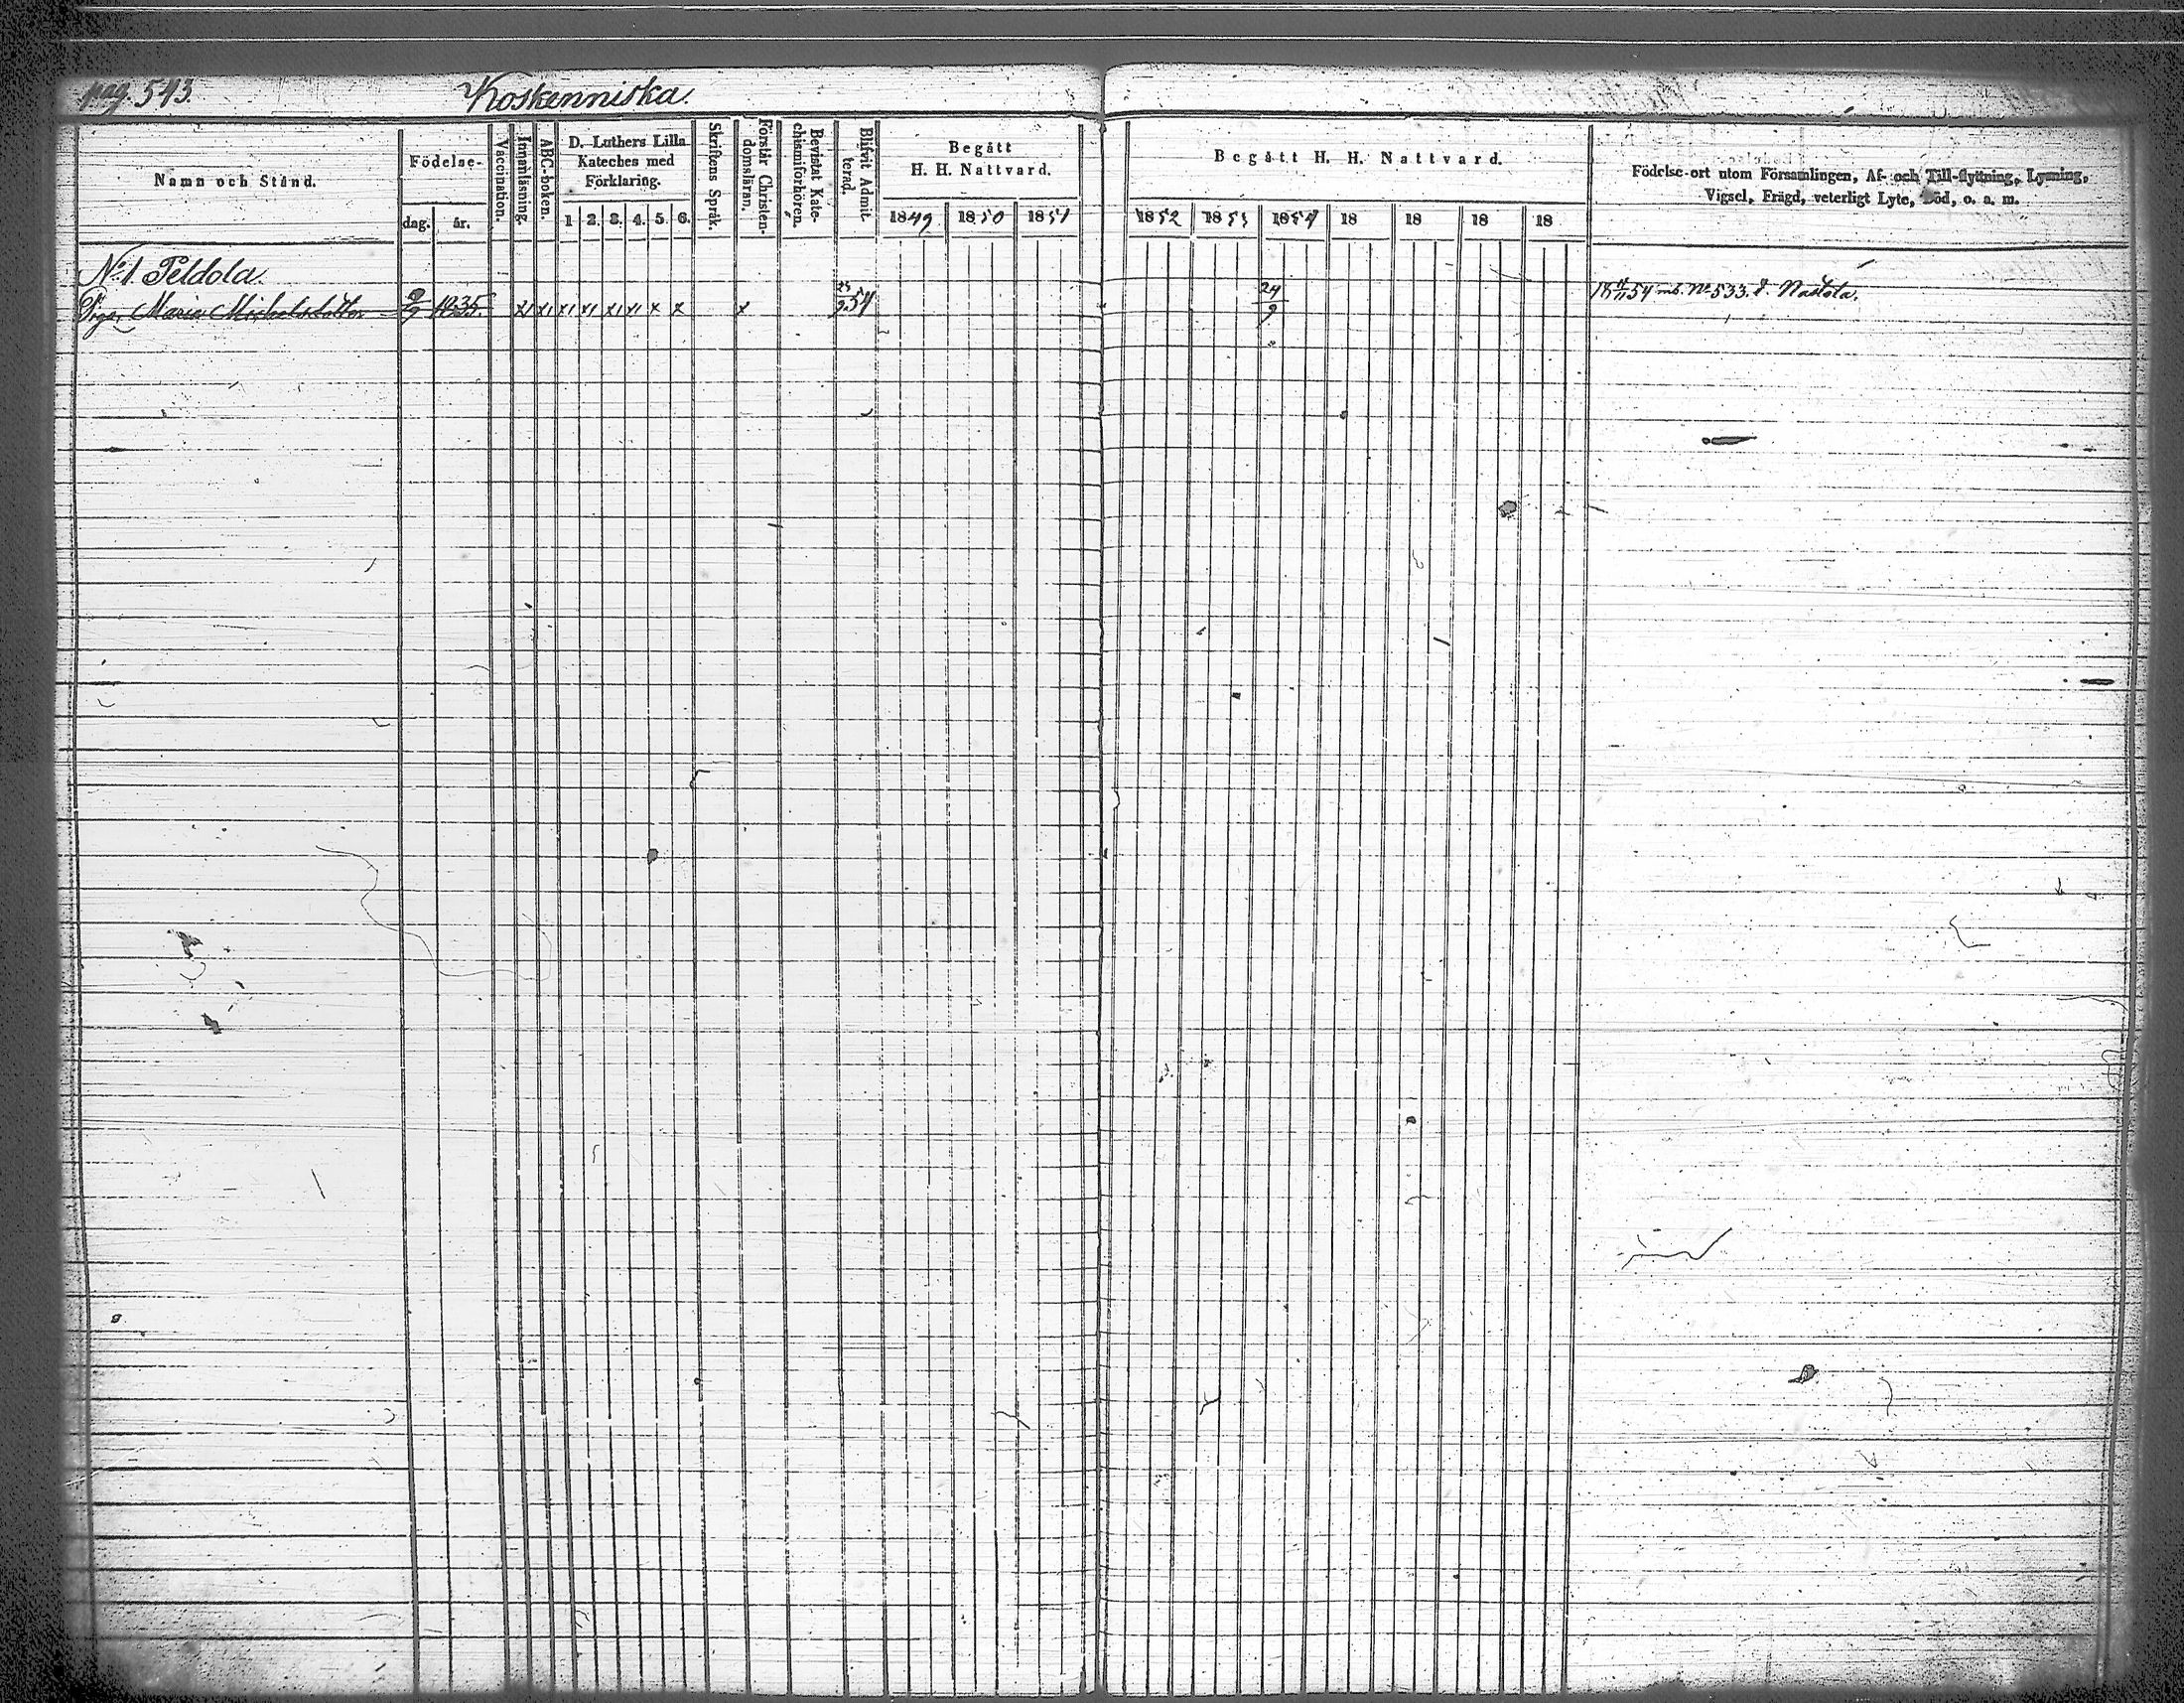 pag. 543. Koskenniska.
Namn och Stånd.
Födelse-
dag. år.
Vaccination.
Innanläsning.
ABC-boken.
D. Luthers Lilla
Kateches med
Förklaring.
1 2. 3. 4. 5. 6.
Skriftens Språk.
Förstår Christen-
domsläran.
Bevistat Kate-
chismiförhören.
Blifvit Admit-
terad.
Begått
H. H. Nattvard.
1849 1850 1851
Begått H. H. Nattvard.
1852 1853 1854 18 18 18 18
Födelse-ort utom Församlingen, Af- och Till-flyttning, Lysning,
Vigsel, Frägd, veterligt Lyte, Död, o. a. m.
No 1 Peldola.
Piga, Maria Michelsdotter 1835. x x x x x x x x x 54 24/9 54 mb. No 533. f. Nastola.